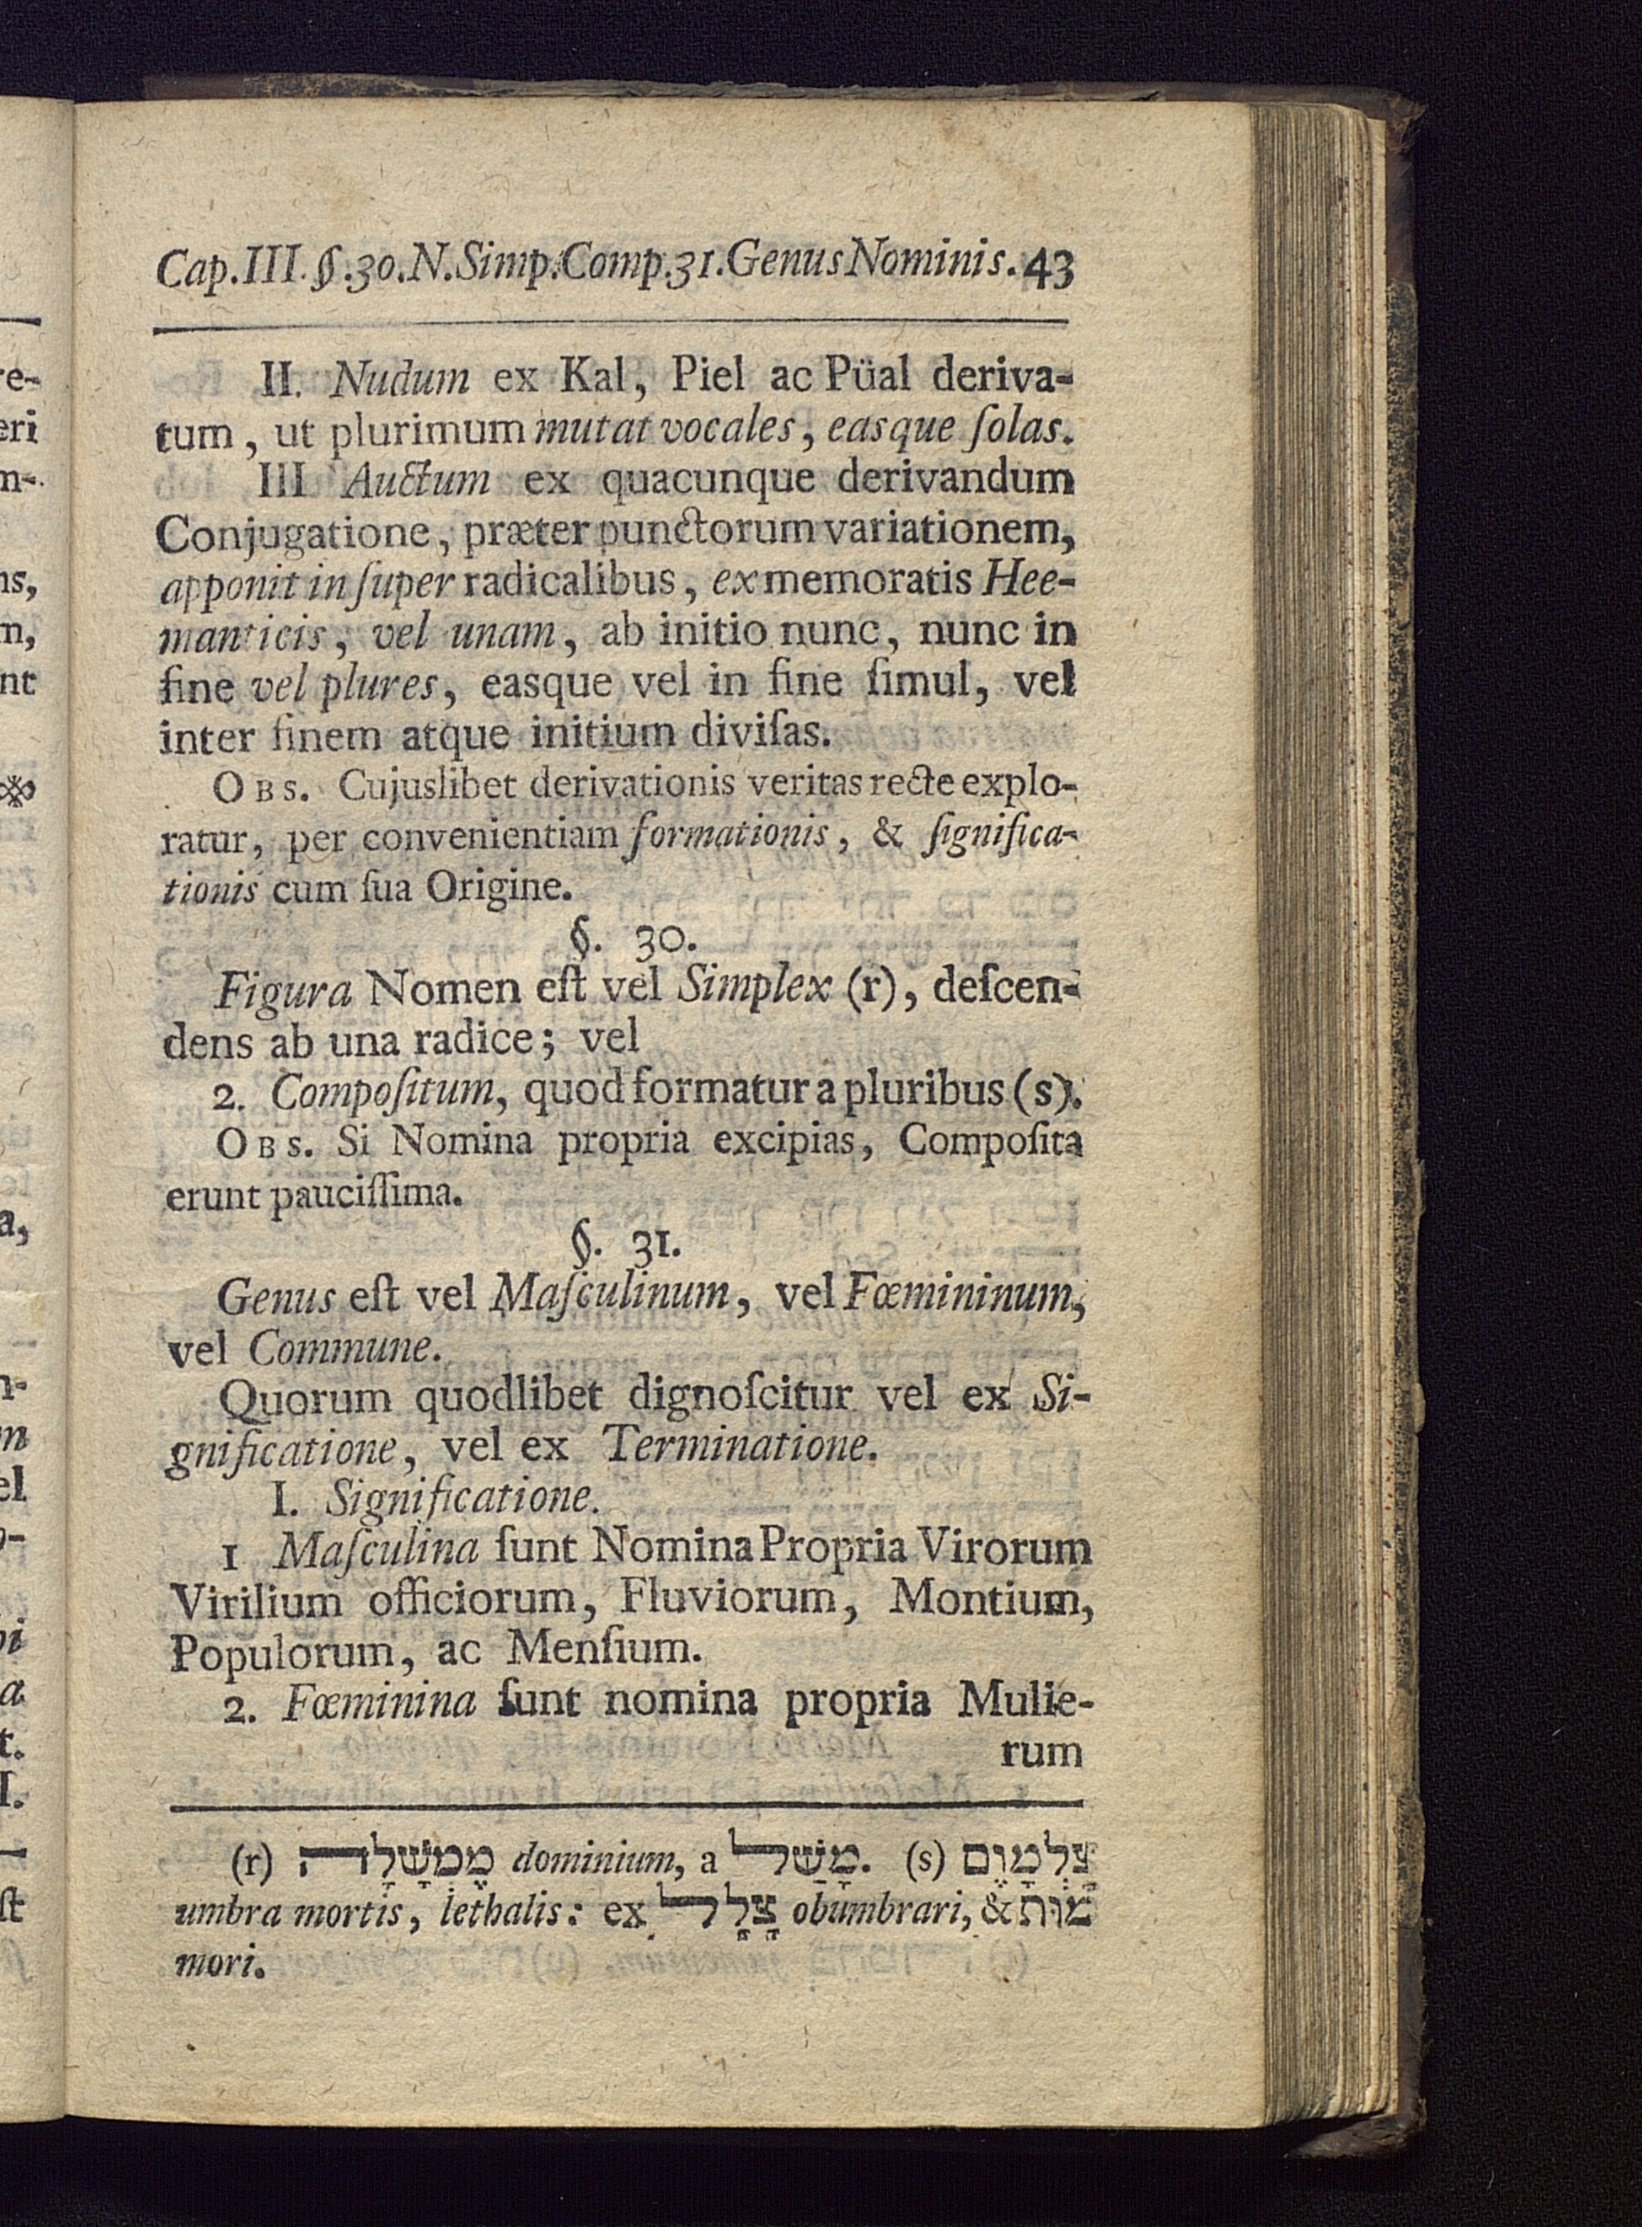 Cap.III.§.30.N.Simp.Comp.31.Genus Nominis.43
II. Nudum ex Kal, Piel ac Püal deriva-
tum, ut plurimum mutat vocales, easque ſolas.
III Auctum ex quacunque derivandum
Conjugatione, præter punctorum variationem,
apponit inſuper radicalibus, ex memoratis Hee-
manticis, vel unam, ab initio nunc, nunc in
fine vel plures, easque vel in fine ſimul, vel
inter finem atque initium diviſas.
OBS. Cujuslibet derivationis veritas recte explo-
ratur, per convenientiam formationis, & ſignifica-
tionis cum ſua Origine.
§. 30.
Figura Nomen eſt vel Simplex (r), deſcen-
dens ab una radice; vel
2. Compoſitum, quod formatur a pluribus (s).
OBS. Si Nomina propria excipias, Compoſita
erunt pauciſſima.
§. 31.
Genus eſt vel Maſculinum, vel Fœmininum,
vel Commune.
Quorum quodlibet dignoſcitur vel ex Si-
gnificatione, vel ex Terminatione.
I. Significatione.
1 Maſculina ſunt Nomina Propria Virorum
Virilium officiorum, Fluviorum, Montium,
Populorum, ac Menſium.
2. Fœminina ſunt nomina propria Mulie-
rum
(r) מֶמְשָׁלָה dominium, a מָשַׁל. (s) צַלְמָוֶם
umbra mortis, lethalis: ex צָלָל obumbrari, & מוּת
mori.